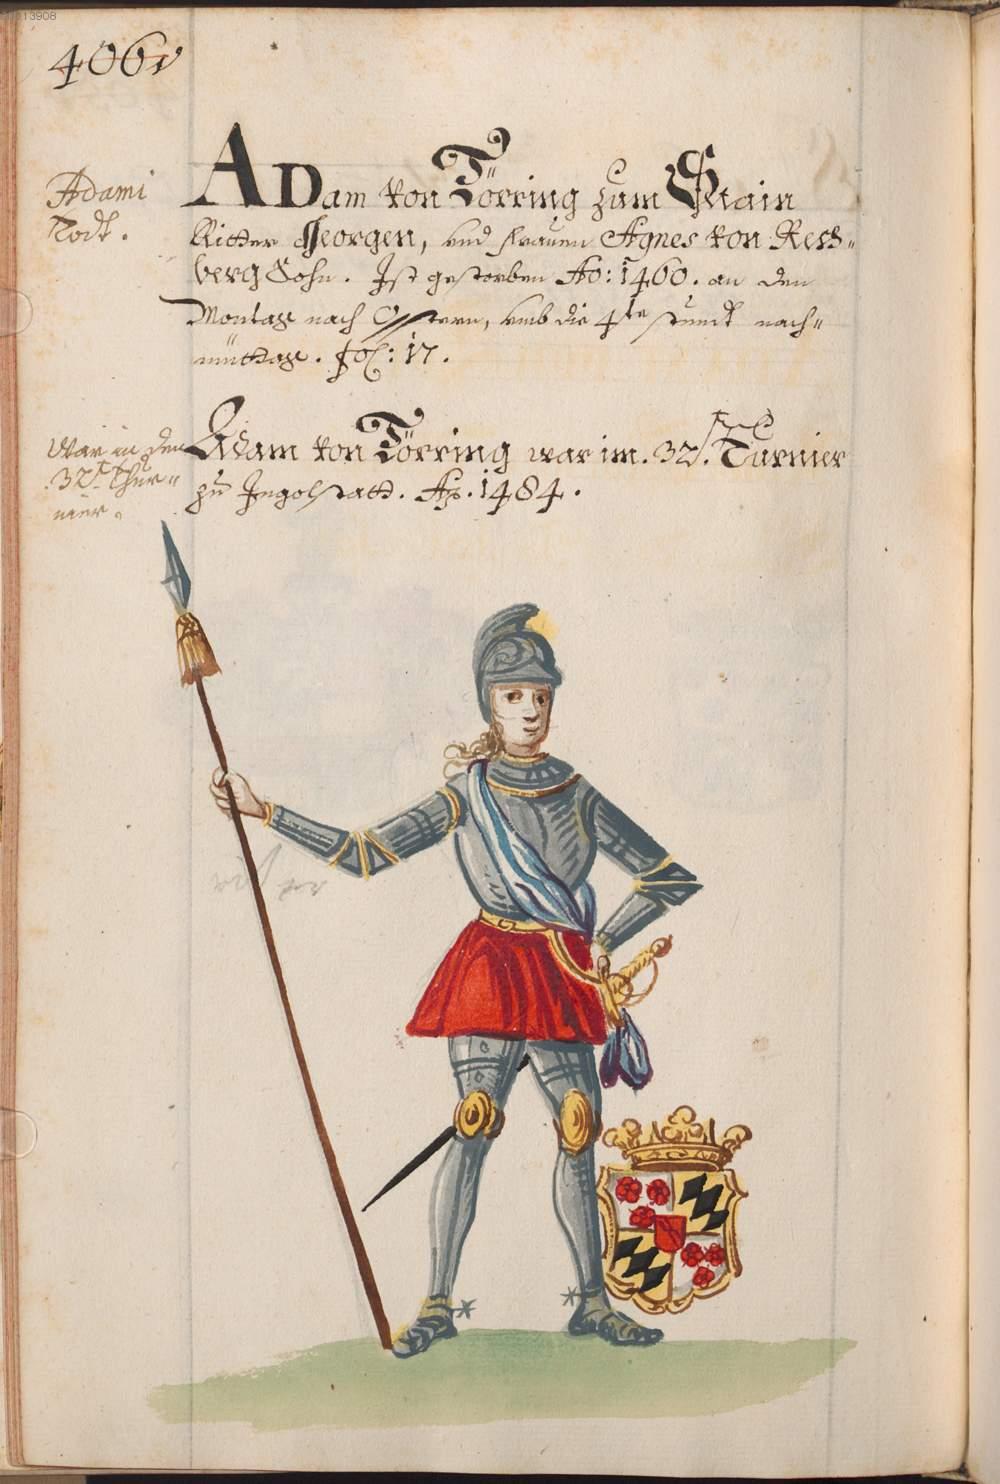 13908
406v
Adami
Todt.
ADam von Törring zum Stain
Ritter Georgen, und frauen Agnes von Rech-
berg Sohn. Ist gestorben Ao: 1460. an den
Montag nach Ostern, umb die 4te stundt nach-
mittag. fol: 17.
War in den
32t. Thur-
nier.
Adam von Törring war im. 32st. Turnier
zu Ingolstatt. Ao. 1484.